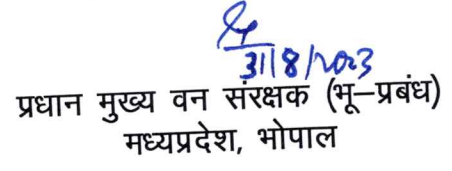 31/8/2023
प्रधान मुख्य वन संरक्षक (भू–प्रबंध)
मध्यप्रदेश, भोपाल